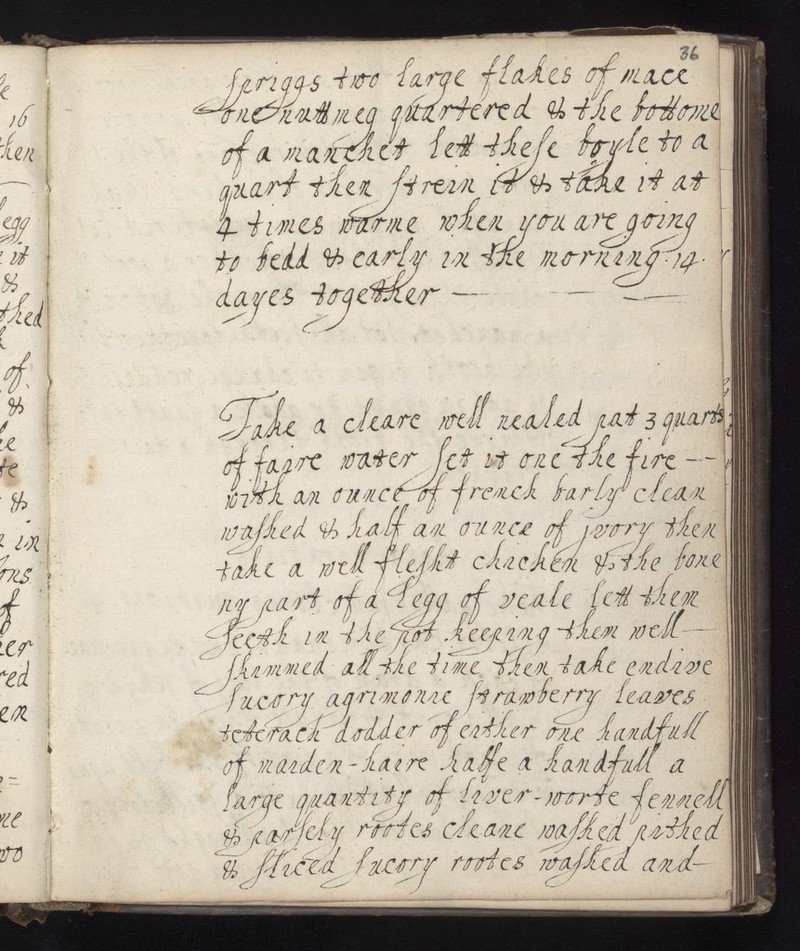 36
spriggs two large flakes of mace
one nuttmeg quartered & the bottome
of a manchet lett these boyle to a
quart then strein it & take it at
4 times warme when you are going
to bedd & early in the morning .14.
dayes together — — —
Take a cleare well nealed pat 3 quarts
of faire water set it one the fire --
with an ounce of french barly clean
washed & half an ounce of jvory then
take a well flesht chicken & the bone
ny part of a legg of veale lett them
seeth in the pot keeping them well —
skimmed all the time then take endive
sucory agrimonie strawberry leaves
ceterach dodder of either one handfull
of maiden-haire halfe a handfull a
large quantity of liver-worte fennell
& parsely rootes cleane washed pithed
& sliced sucory rootes washed and —